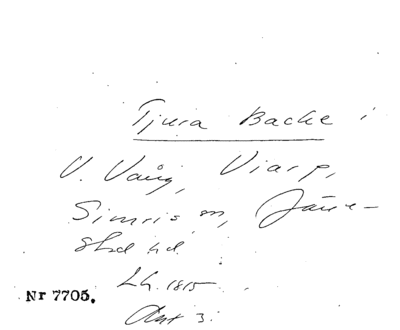 Tjura Backe i
V. Vång, Viarp,
Simris sn, Järre-
stad hd.
Lh. 1815
Akt 3.
Nr 7705.